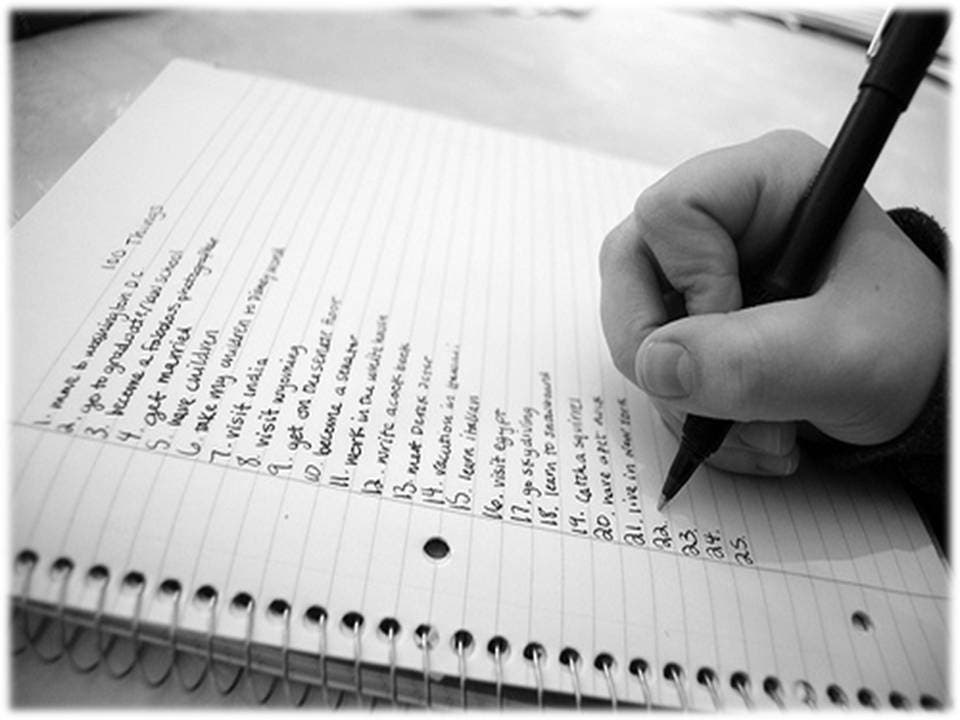 100 Things
1. move to washington D.C
2. go to graduate/law school
3. become a fabulous photographer
4. get married
5. have children
6. take my children to Disney world
7. visit India
8. visit wyoming
9. get on the senate floor
10. become a senator
11. work in the white house
12. write a cook book
13. meet Derek Jeter
14. vacation in
15. learn italian
16. visit egypt
17. go skydiving
18. learn to snowboard
19. catch a squirrel
20. have apt
21. live in new york
22.
23.
24.
25.